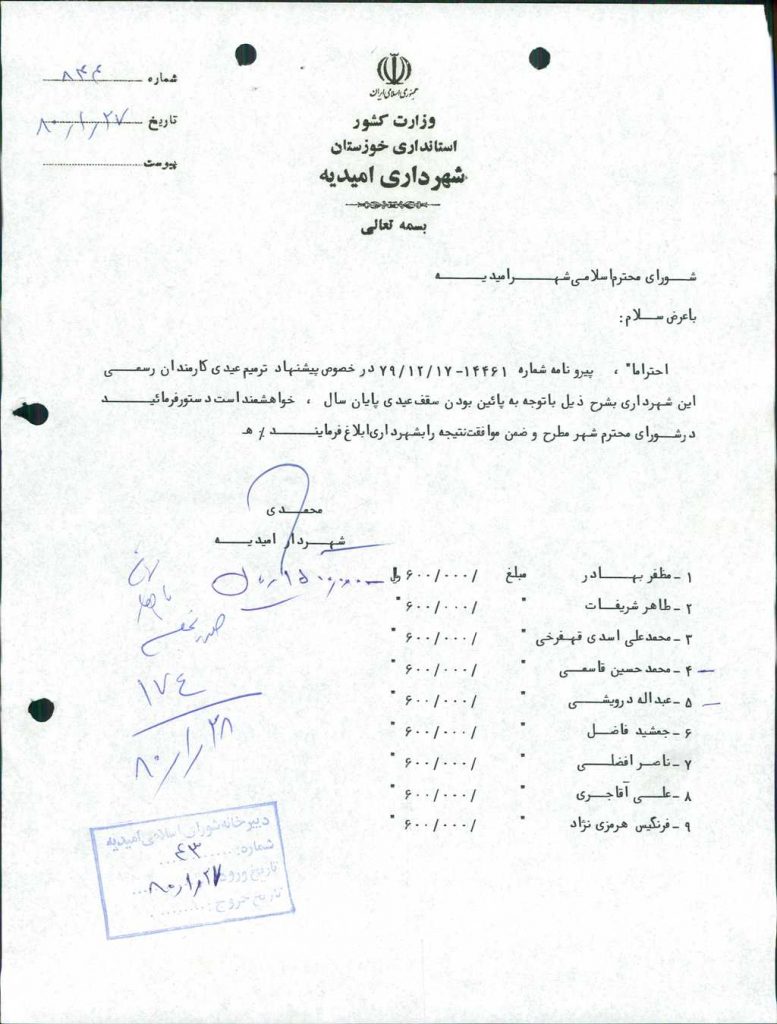 جمهوری اسلامی ایران
وزارت کشور
استانداری خوزستان
شهرداری امیدیه
بسمه تعالی
شماره ۸۴۴
تاریخ ۸۰/۱/۲۷
پیوست
شورای محترم اسلامی شهر امیدیه
با عرض سلام :
احتراما" ، پیرو نامه شماره ۱۴۴۶۱-۷۹/۱۲/۱۷ در خصوص پیشنهاد ترمیم عیدی کارمندان رسمی
این شهرداری بشرح ذیل با توجه به پائین بودن سقف عیدی پایان سال ، خواهشمند است دستور فرمائید
در شورای محترم شهر مطرح و ضمن موافقت نتیجه را بشهرداری ابلاغ فرمایند ٪ هـ
محمدی
شهردار امیدیه
۱ - مظفر بهادر مبلغ /۶۰۰/۰۰۰ ریال
۲ - طاهر شریفات " /۶۰۰/۰۰۰ "
۳ - محمدعلی اسدی قهفرخی " /۶۰۰/۰۰۰ "
۴ - محمدحسین قاسمی " /۶۰۰/۰۰۰ "
۵ - عبداله درویشی " /۶۰۰/۰۰۰ "
۶ - جمشید فاضل " /۶۰۰/۰۰۰ "
۷ - ناصر افضلی " /۶۰۰/۰۰۰ "
۸ - علی آقاجری " /۶۰۰/۰۰۰ "
۹ - فرنگیس هرمزی نژاد " /۶۰۰/۰۰۰ "
۱۷۴
۸۰/۱/۲۸
دبیرخانه شورای اسلامی امیدیه
شماره: ۴۳
تاریخ ورود ۸۰/۱/۲۷
تاریخ خروج :